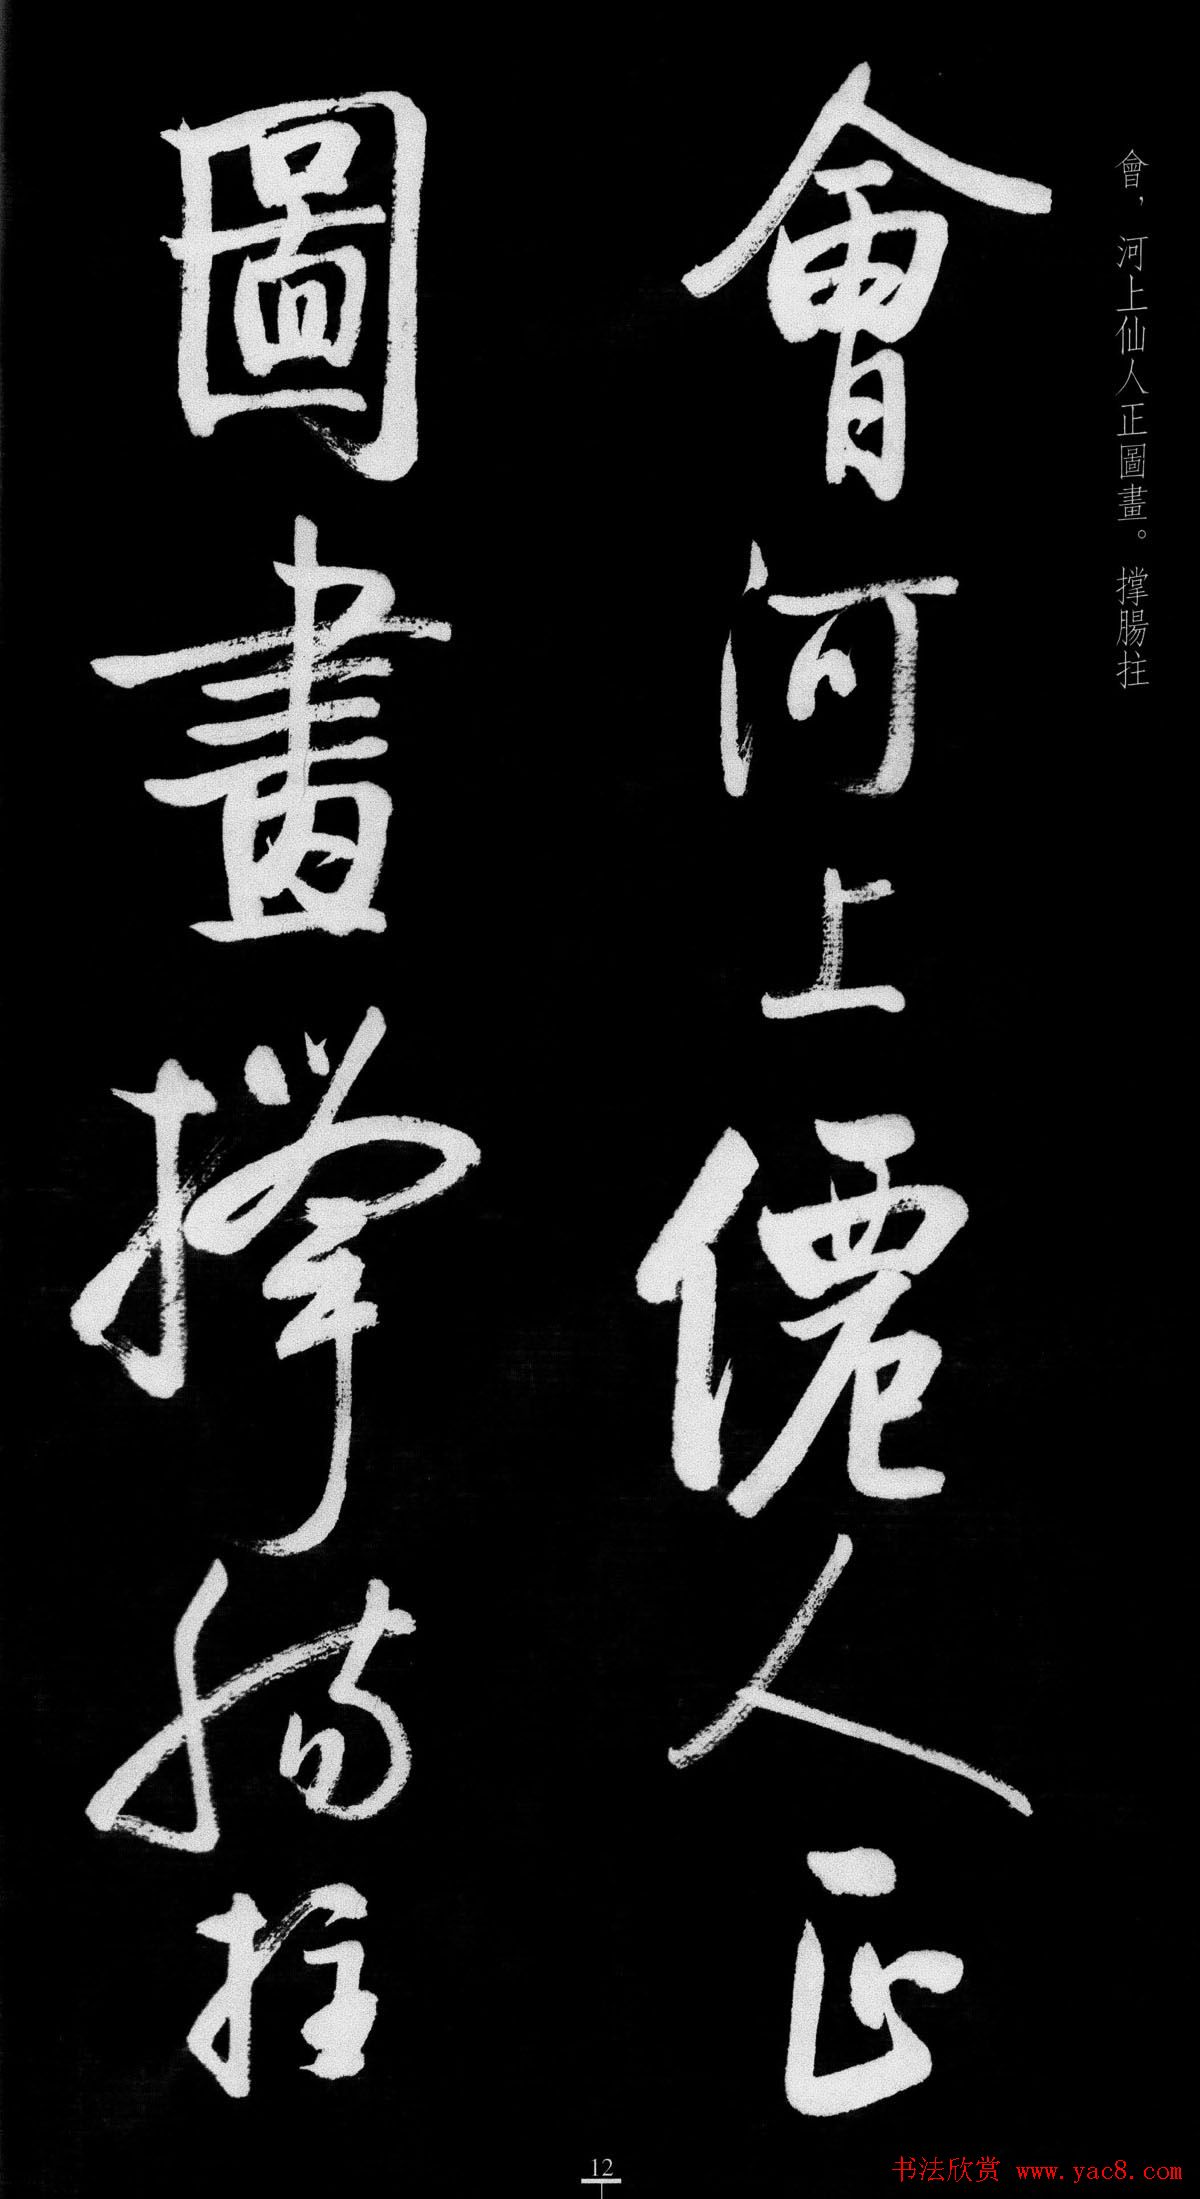 會，河上仙人正圖畫。撑腸拄
會河上僊人正
圖畫撑腸拄
12
书法欣赏 www.yac8.com